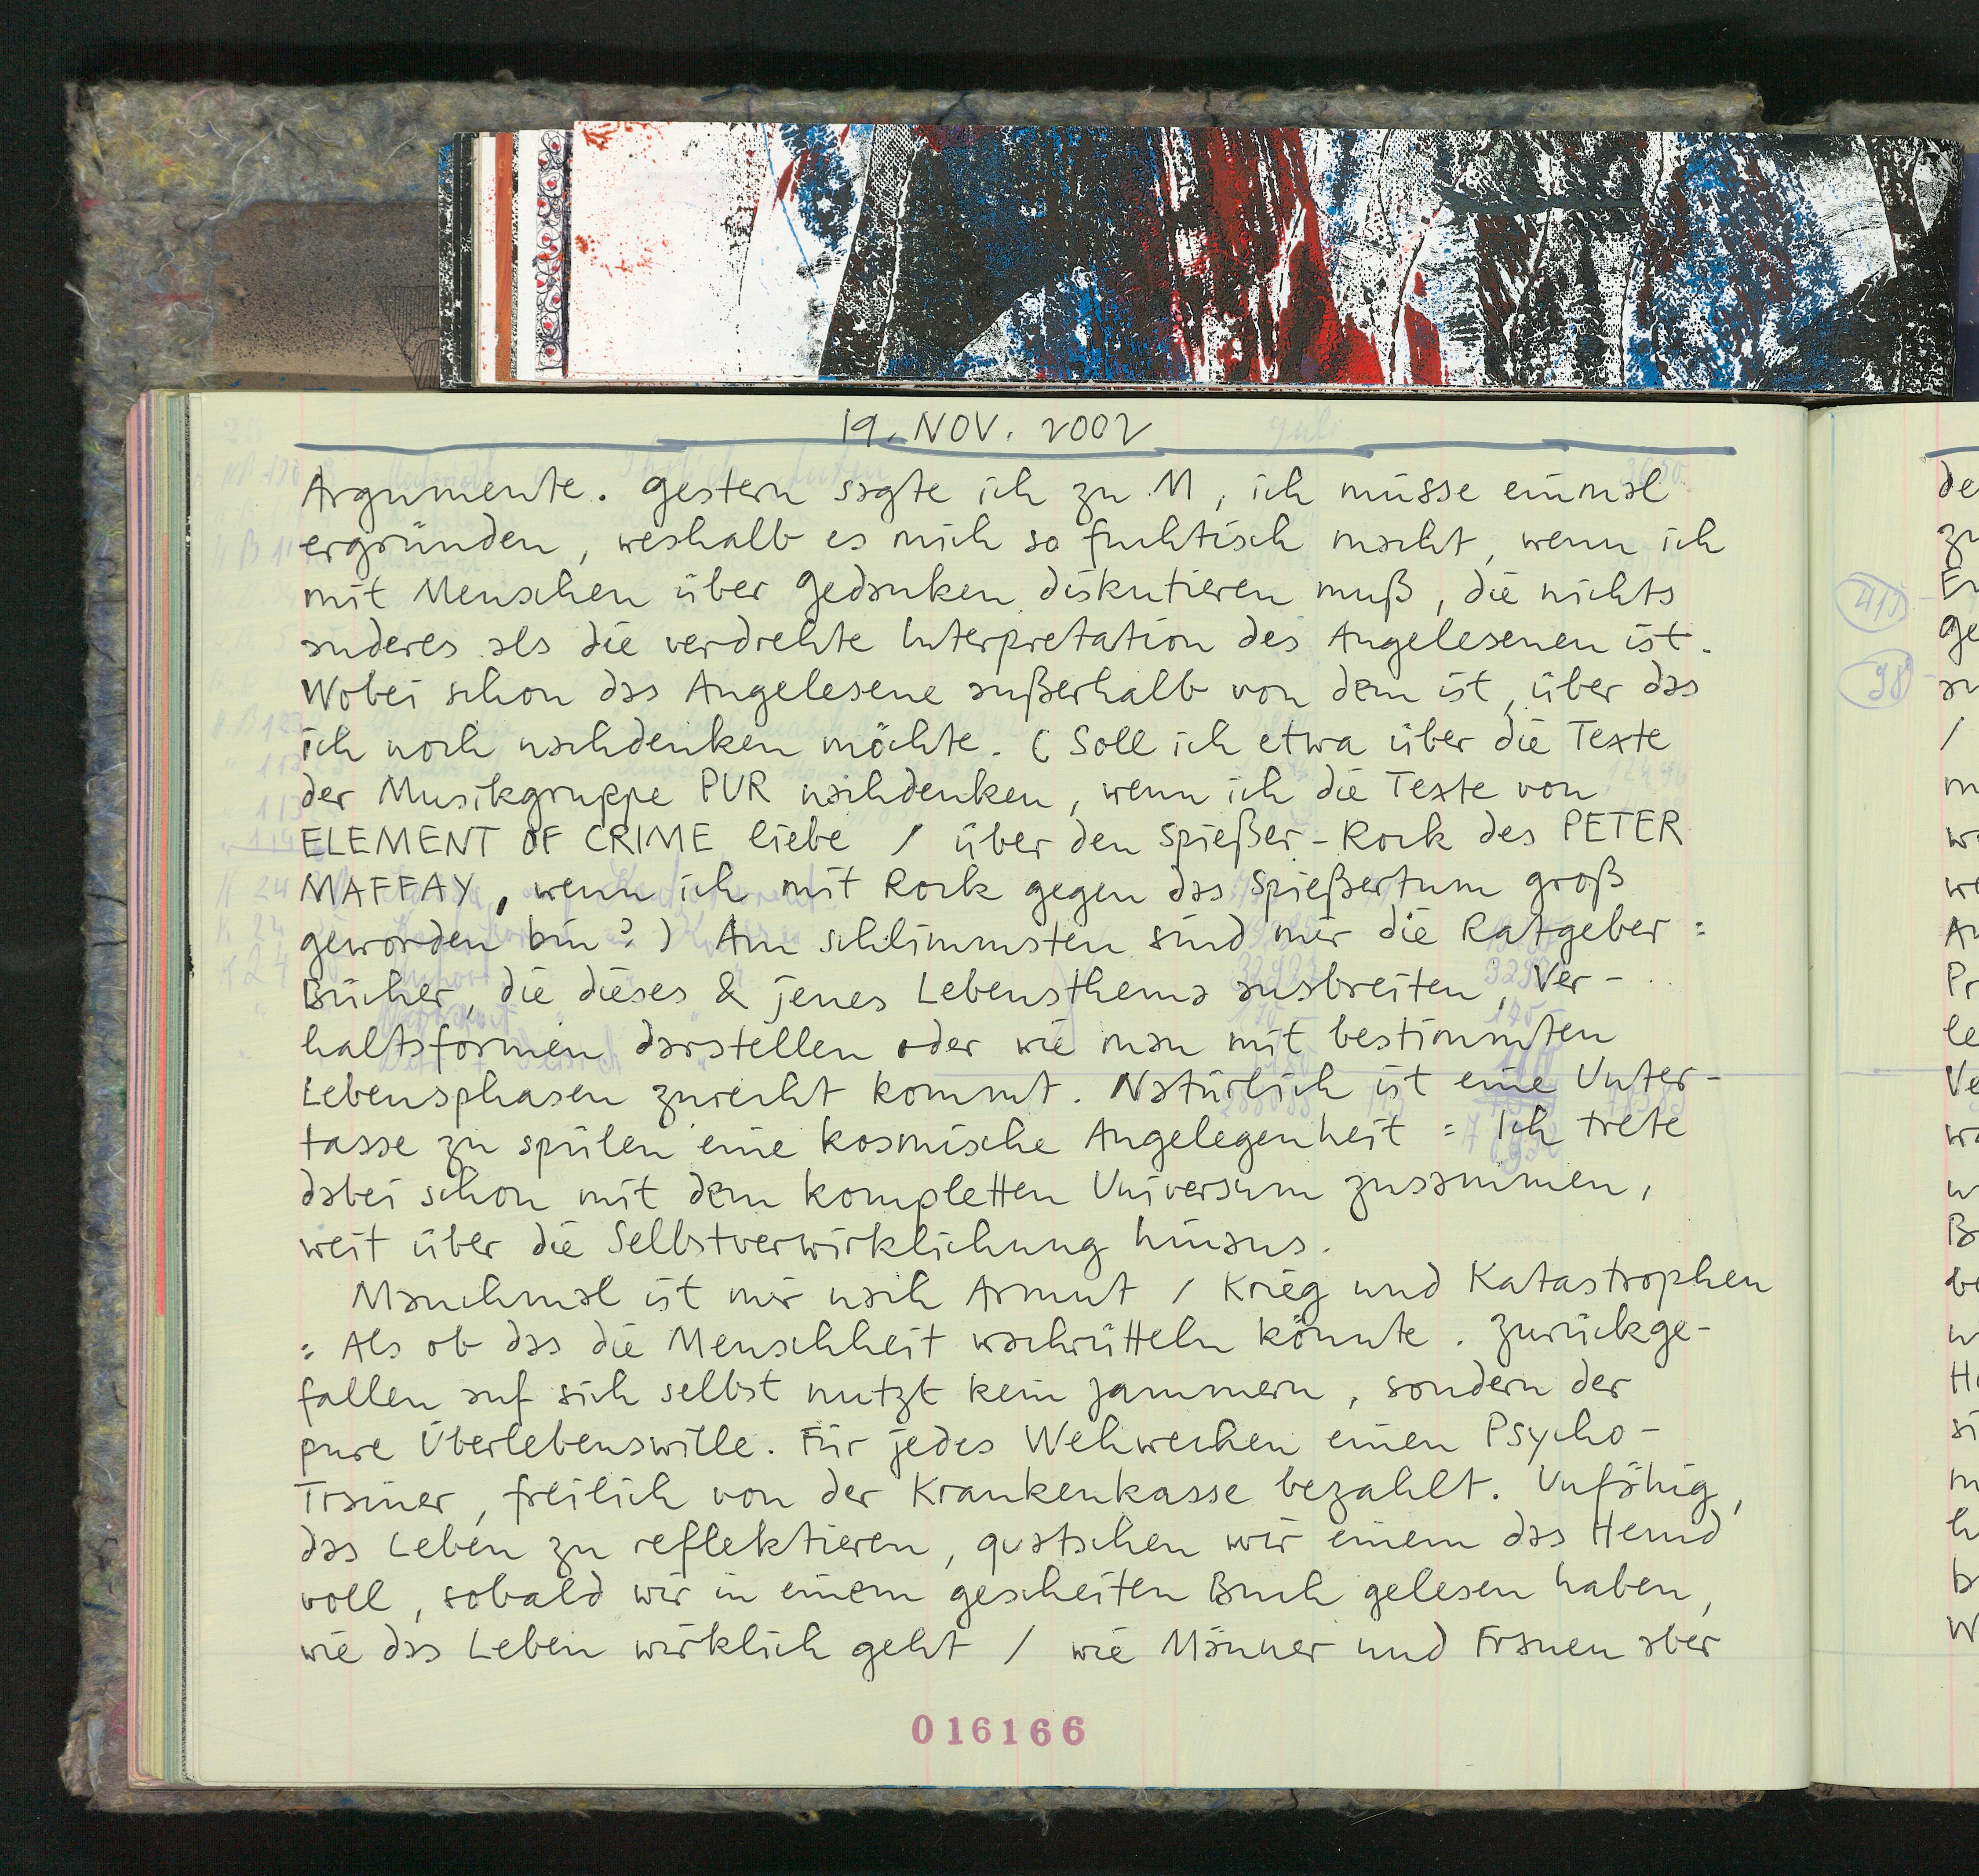 19. NOV. 2002
Argumente. Gestern sagte ich zu M, ich müsse einmal
ergründen, weshalb es mich so fuchtisch macht, wenn ich
mit Menschen über Gedanken diskutieren muß, die nichts
anderes als die verdrehte Interpretation des Angelesenen ist.
Wobei schon das Angelesene außerhalb von dem ist, über das
ich noch nachdenken möchte. (Soll ich etwa über die Texte
der Musikgruppe PUR nachdenken, wenn ich die Texte von
ELEMENT OF CRIME liebe / über den Spießer-Rock des PETER
MAFFAY, wenn ich mit Rock gegen das Spießertum groß
geworden bin?) Am schlimmsten sind mir die Ratgeber:
Bücher, die dieses & jenes Lebensthema ausbreiten, Ver-
haltsformen darstellen oder wie man mit bestimmten
Lebensphasen zurecht kommt. Natürlich ist eine Unter-
tasse zu spülen eine kosmische Angelegenheit: Ich trete
dabei schon mit dem kompletten Universum zusammen,
weit über die Selbstverwirklichung hinaus.
Manchmal ist mir nach Armut / Krieg und Katastrophen
: Als ob das die Menschheit wachrütteln könnte. Zurückge-
fallen auf sich selbst nutzt kein Jammern, sondern der
pure Überlebenswille. Für jedes Wehwechen einen Psycho-
Trainer, freilich von der Krankenkasse bezahlt. Unfähig,
das Leben zu reflektieren, quatschen wir einem das Hemd
voll, sobald wir in einem gescheiten Buch gelesen haben,
wie das Leben wirklich geht / wie Männer und Frauen aber
016166